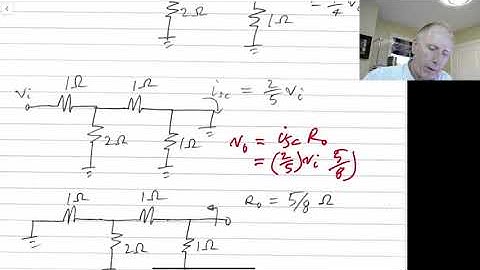 2Ω 1Ω - 1/4 vi
vi 1Ω 1Ω isc = 2/5 vi
2Ω 1Ω vo = isc Ro
= (2/5) vi 5/8)
1Ω 1Ω Ro = 5/8 Ω
2Ω 1Ω